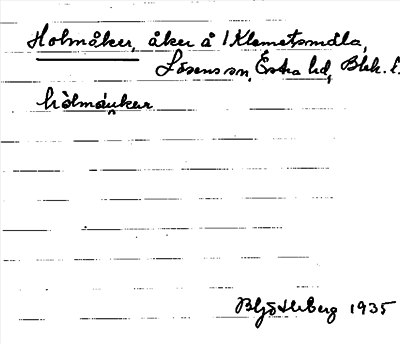 Holmåker, åker å 1 Klemetsmåla,
Lösens sn, Östra hd, Blek. l.
hòlmåuker
1935